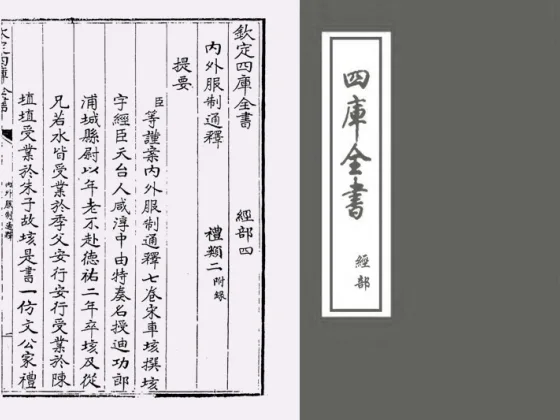 欽定四庫全書 經部四
内外服制通釋 禮類二 附錄
提要
臣等謹案内外服制通釋七卷宋車垓撰垓
字經臣天台人咸淳中由特奏名授迪功郎
浦城縣尉以年老不赴德祐二年卒垓及從
兄若水皆受業於季父安行安行受業於陳
埴埴受業於朱子故垓是書一仿文公家禮
内外服制通釋
四庫全書
經部